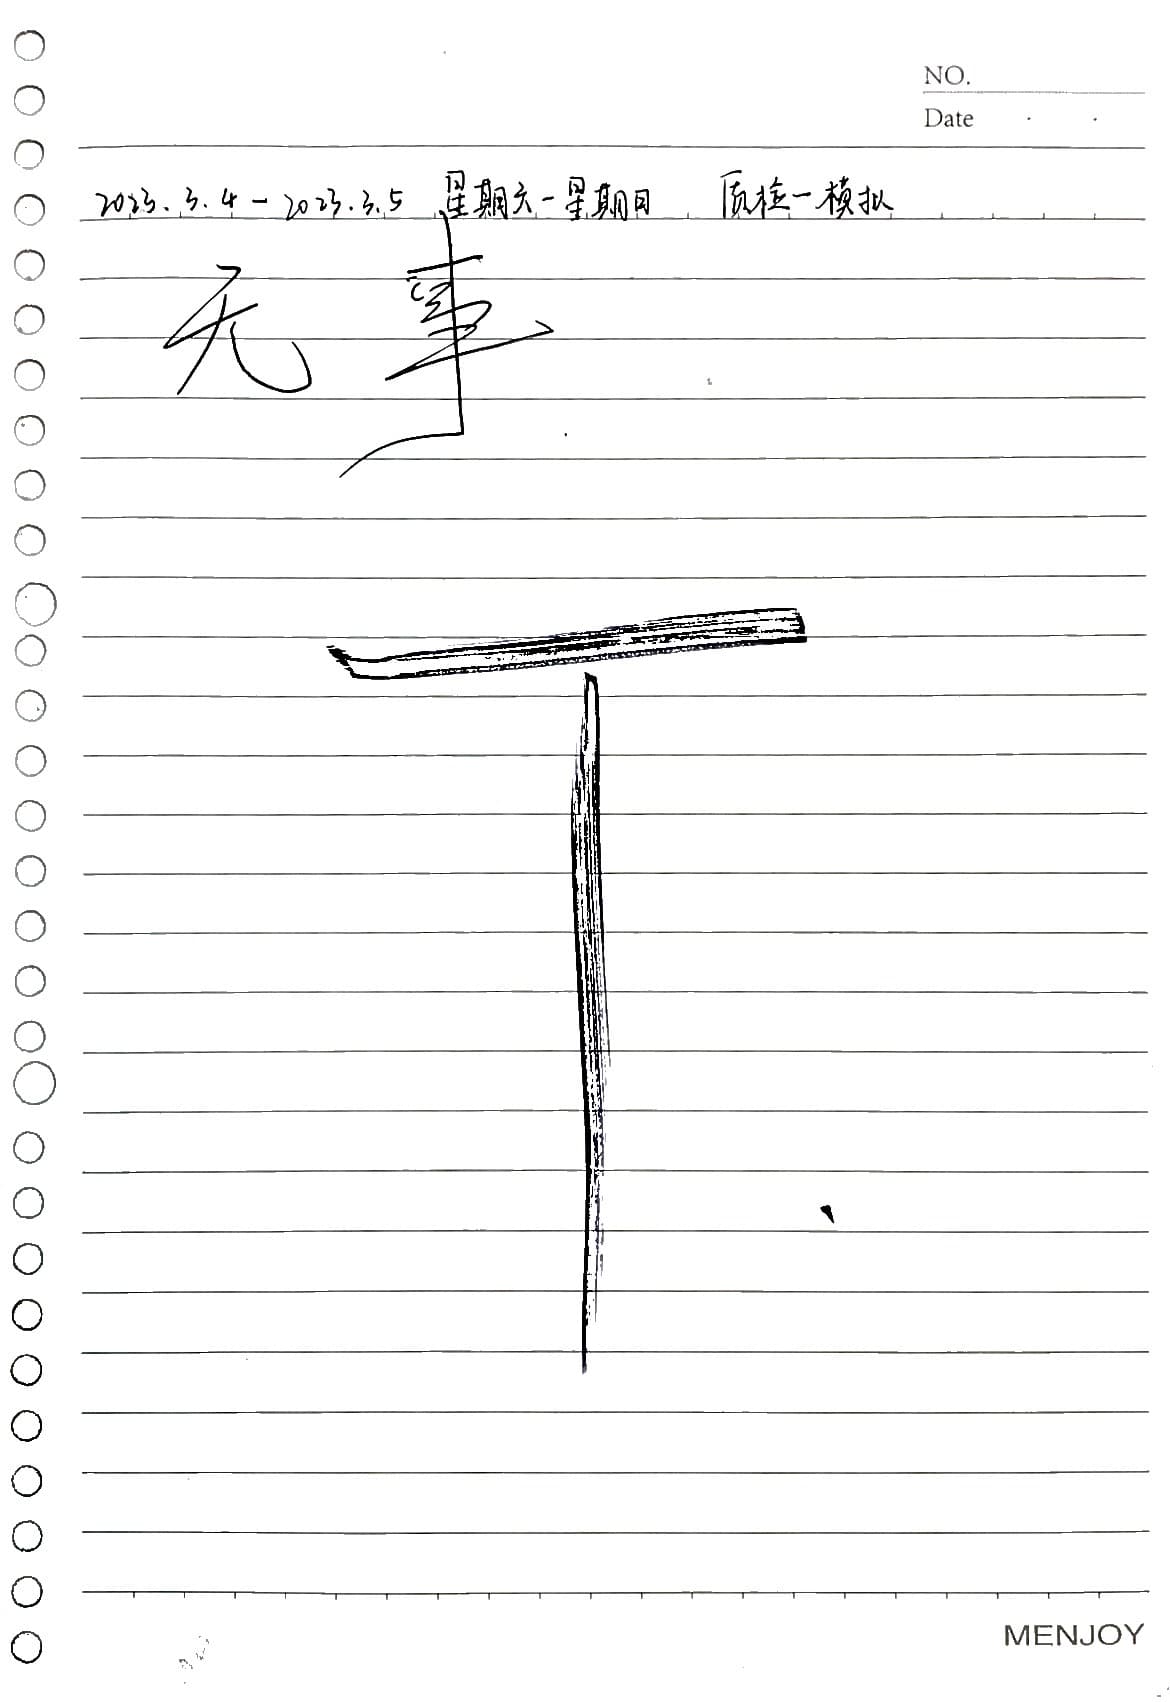 NO.
Date
2023.3.4-2023.3.5 星期六-星期日 质检一模拟
无事
丅
MENJOY